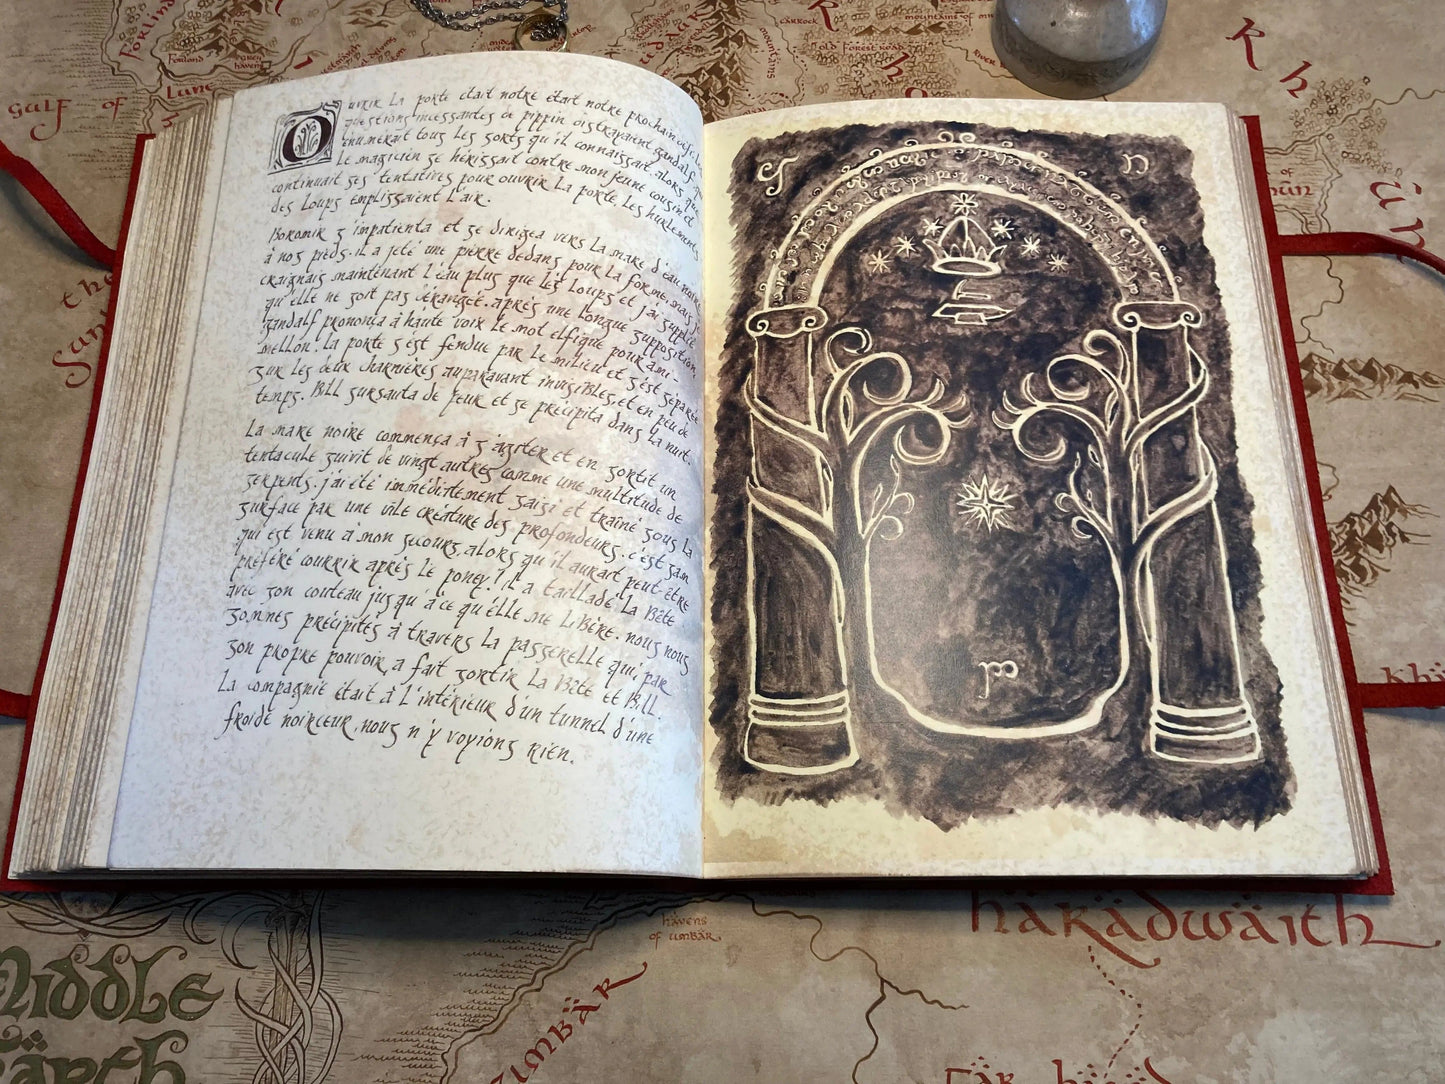 Gulf of Lune
Forlond
Grey havens
Carrock
mountains of
old Forest road
River
Ouvrir La porte était notre était notre prochain défi. Les
questions incessantes de pippin distrayaient gandalf qui
énumérait tous les sorts qu'il connaissait. alors que
Le magicien se hérissait contre mon jeune cousin et
continuait ses tentatives pour ouvrir La porte, Les hurlements
des Loups emplissaient L'air.
Boromir s'impatienta et se dirigea vers La mare d'eau noire
à nos pieds. il a jeté une pierre dedans pour La forme, mais je
craignais maintenant L'eau plus que Les Loups et j'ai supplié
qu'elle ne soit pas dérangée. après une Longue supposition,
gandalf prononça à haute voix Le mot elfique pour ami-
mellon. La porte s'est fendue par Le milieu et s'est séparée
sur Les deux charnières auparavant invisibles, et en peu de
temps. Bill sursauta de peur et se précipita dans La nuit.
La mare noire commença à s'agiter et en sortit un
tentacule suivit de vingt autres comme une multitude de
serpents. j'ai été immédiatement saisi et traîné sous La
surface par une vile créature des profondeurs. c'est sam
qui est venu à mon secours, alors qu'il aurait peut-être
préféré courrir après Le poney! il a tailladé La Bête
avec son couteau jusqu'à ce qu'elle me Libère. nous nous
sommes précipités à travers La passerelle qui, par
son propre pouvoir, a fait sortir La Bête et Bill.
La compagnie était à L'intérieur d'un tunnel d'une
froide noirceur, nous n'y voyions rien.
havens
of umbar
hàràdwaith
umbàr
Middle
Earth